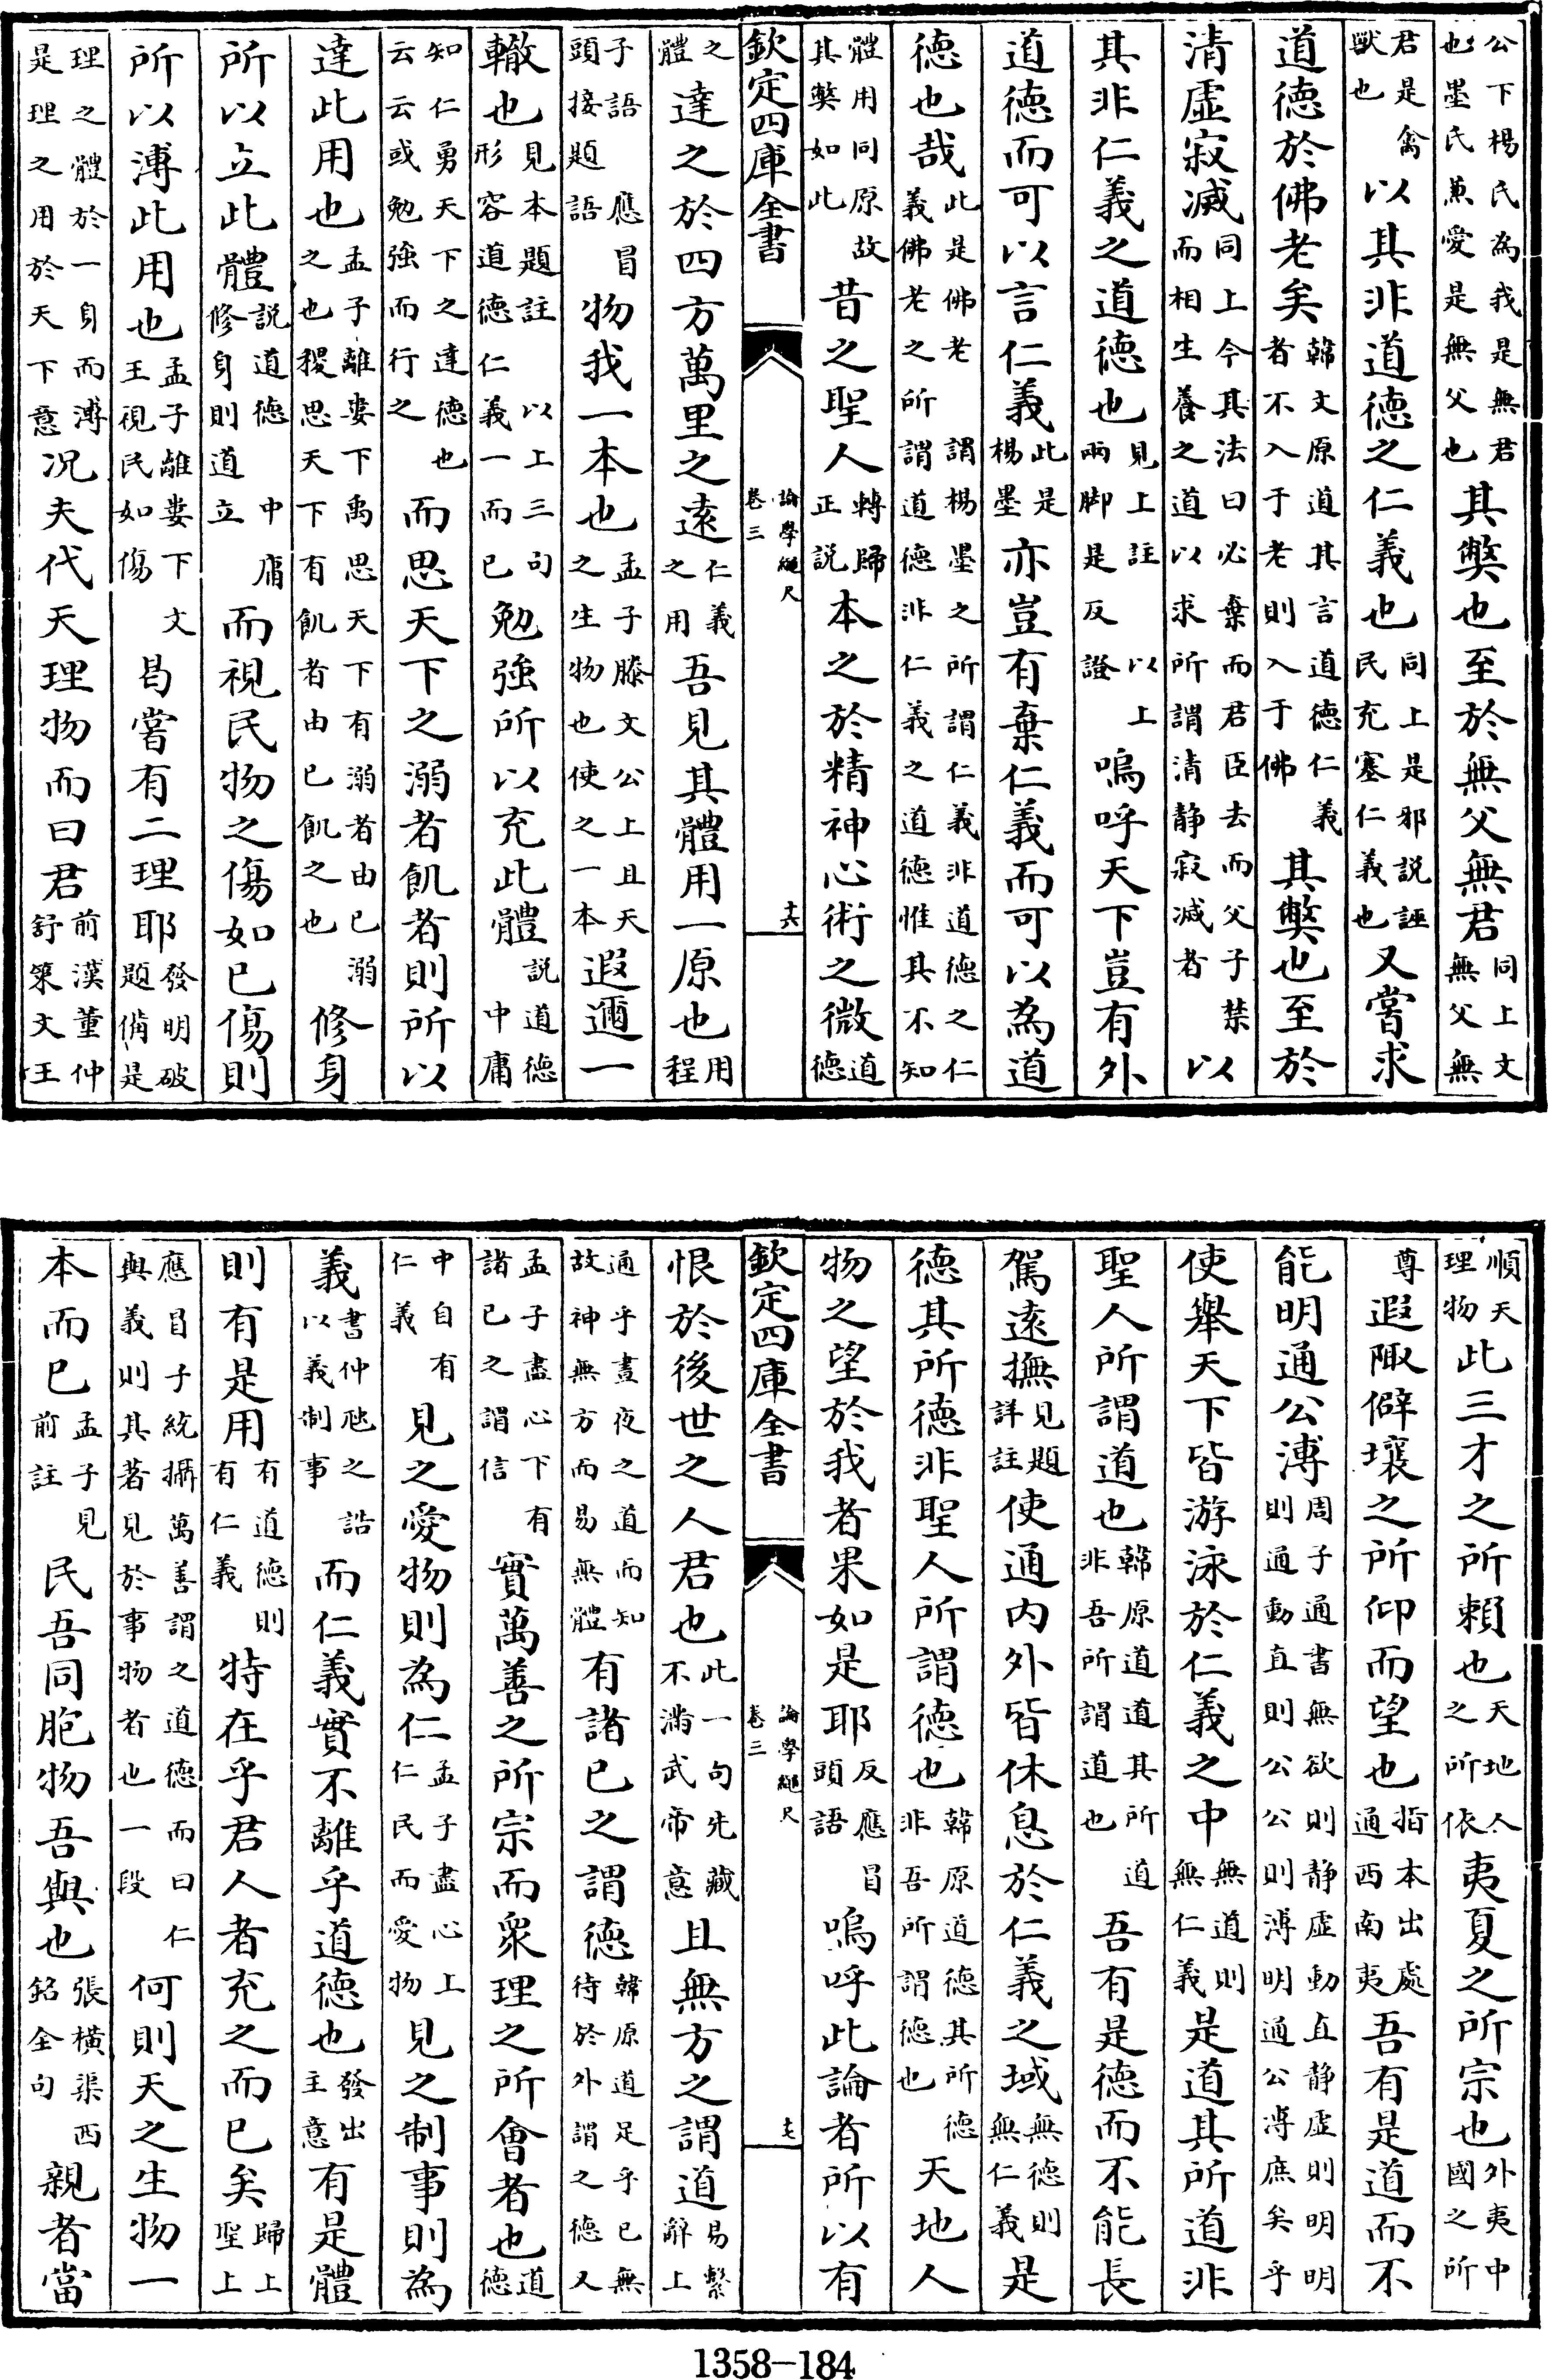 公下楊氏為我是無君也墨氏兼愛是無父也其弊也至於無父無君同上文無父無
君是禽獸也以其非道德之仁義也同上是邪說誣民充塞仁義也又嘗求
道德於佛老矣韓文原道其言道德仁義者不入于老則入于佛其弊也至於
清虛寂滅同上今其法曰必棄而君臣去而父子禁而相生養之道以求所謂清靜寂滅者以
其非仁義之道德也見上註兩脚是反證以上嗚呼天下豈有外
道德而可以言仁義此是楊墨亦豈有棄仁義而可以為道
德也哉此是佛老義佛老之所謂楊墨之所謂仁義非道德之仁謂道德非仁義之道德惟其不知
體用同原故其弊如此昔之聖人轉歸正説本之於精神心術之微道德
欽定四庫全書
論學繩尺
卷三
十六
之體達之於四方萬里之遠仁義之用吾見其體用一原也用程
子語應冒頭接題語物我一本也孟子滕文公上且天之生物也使之一本遐邇一
轍也見本題註形容道德仁義以上三句一而已勉強所以充此體説道德中庸
知仁勇天下之達德也云云或勉強而行之而思天下之溺者飢者則所以
達此用也孟子離婁下禹思天下有溺者由已溺之也稷思天下有飢者由已飢之也修身
所以立此體説道德中庸修身則道立而視民物之傷如已傷則
所以溥此用也孟子離婁下文王視民如傷曷嘗有二理耶發明破題備是
理之體於一身而溥是理之用於天下意况夫代天理物而曰君前漢董仲舒策文王
順天理物此三才之所賴也天地人之所依夷夏之所宗也外夷中國之所
尊遐陬僻壤之所仰而望也指本出處通西南夷吾有是道而不
能明通公溥周子通書無欲則靜虛動直靜虛則明明則通動直則公公則溥明通公溥庶矣乎
使舉天下皆游泳於仁義之中無道則無仁義是道其所道非
聖人所謂道也韓原道道其所道非吾所謂道也吾有是德而不能長
駕遠撫見題詳註使通內外皆休息於仁義之域無德則無仁義是
德其所德非聖人所謂德也韓原道德其所德非吾所謂德也天地人
物之望於我者果如是耶反應冒頭語嗚呼此論者所以有
欽定四庫全書
論學繩尺
卷三
十七
恨於後世之人君也此一句先藏不滿武帝意且無方之謂道易繫辭上
通乎晝夜之道而知故神無方而易無體有諸已之謂德韓原道足乎已無待於外謂之德又
孟子盡心下有諸已之謂信實萬善之所宗而衆理之所會者也道德
中自有仁義見之愛物則為仁孟子盡心上仁民而愛物見之制事則為
義書仲虺之誥以義制事而仁義實不離乎道德也發出主意有是體
則有是用有道德則有仁義特在乎君人者充之而已矣歸上聖上
應冒子統攝萬善謂之道德而曰仁與義則其著見於事物者也一段何則天之生物一
本而已孟子見前註民吾同胞物吾與也張橫渠西銘全句親者當
1358-184